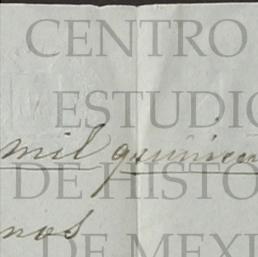 CENTRO
ESTUDIO
mil quinien
DE HISTO
nos
DE MEXI